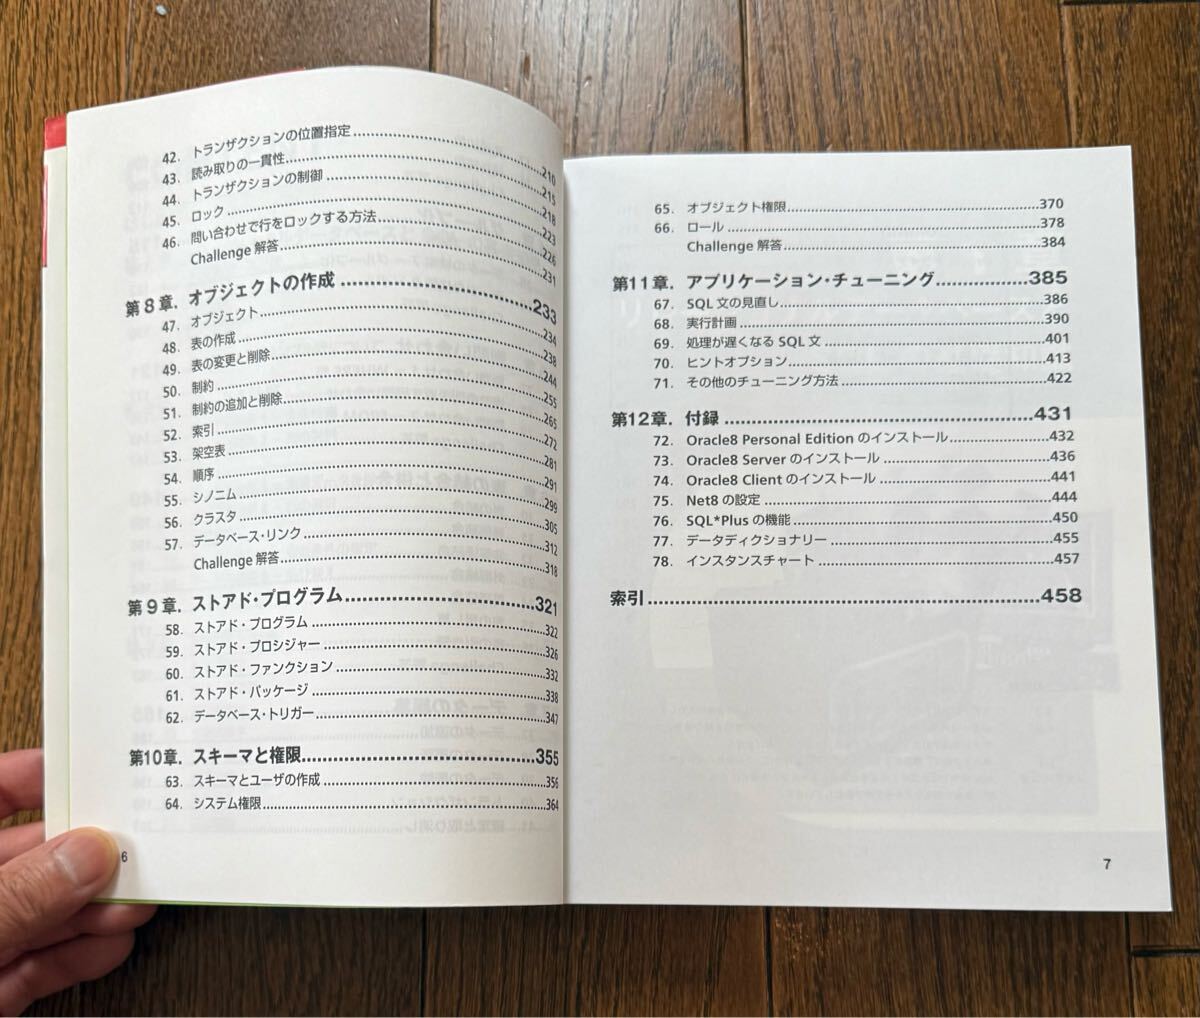 42. トランザクションの位置指定……210
43. 読み取りの一貫性……215
44. トランザクションの制御……218
45. ロック……223
46. 問い合わせで行をロックする方法……226
Challenge 解答……231
第8章. オブジェクトの作成……233
47. オブジェクト……234
48. 表の作成……238
49. 表の変更と削除……244
50. 制約……255
51. 制約の追加と削除……265
52. 索引……272
53. 架空表……281
54. 順序……291
55. シノニム……299
56. クラスタ……305
57. データベース・リンク……312
Challenge 解答……318
第9章. ストアド・プログラム……321
58. ストアド・プログラム……322
59. ストアド・プロシジャー……326
60. ストアド・ファンクション……332
61. ストアド・パッケージ……338
62. データベース・トリガー……347
第10章. スキーマと権限……355
63. スキーマとユーザの作成……356
64. システム権限……364
6
65. オブジェクト権限……370
66. ロール……378
Challenge 解答……384
第11章. アプリケーション・チューニング……385
67. SQL 文の見直し……386
68. 実行計画……390
69. 処理が遅くなる SQL 文……401
70. ヒントオプション……413
71. その他のチューニング方法……422
第12章. 付録……431
72. Oracle8 Personal Edition のインストール……432
73. Oracle8 Server のインストール……436
74. Oracle8 Client のインストール……441
75. Net8 の設定……444
76. SQL*Plus の機能……450
77. データディクショナリー……455
78. インスタンスチャート……457
索引……458
7